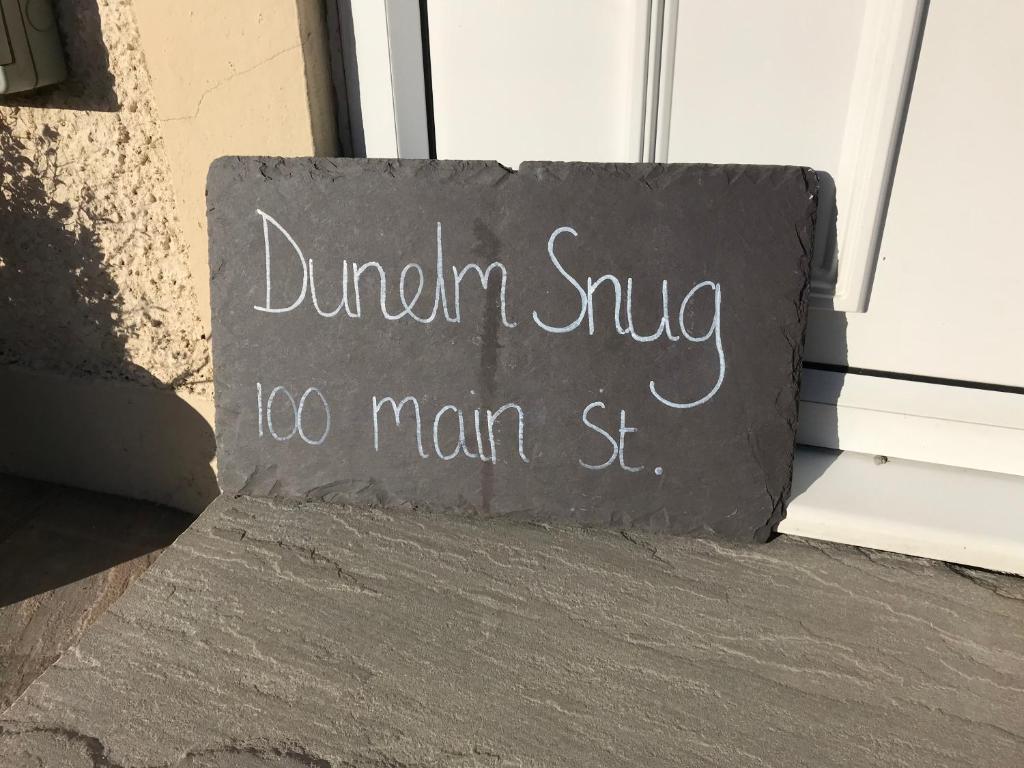 Dunelm Snug
100 main St.